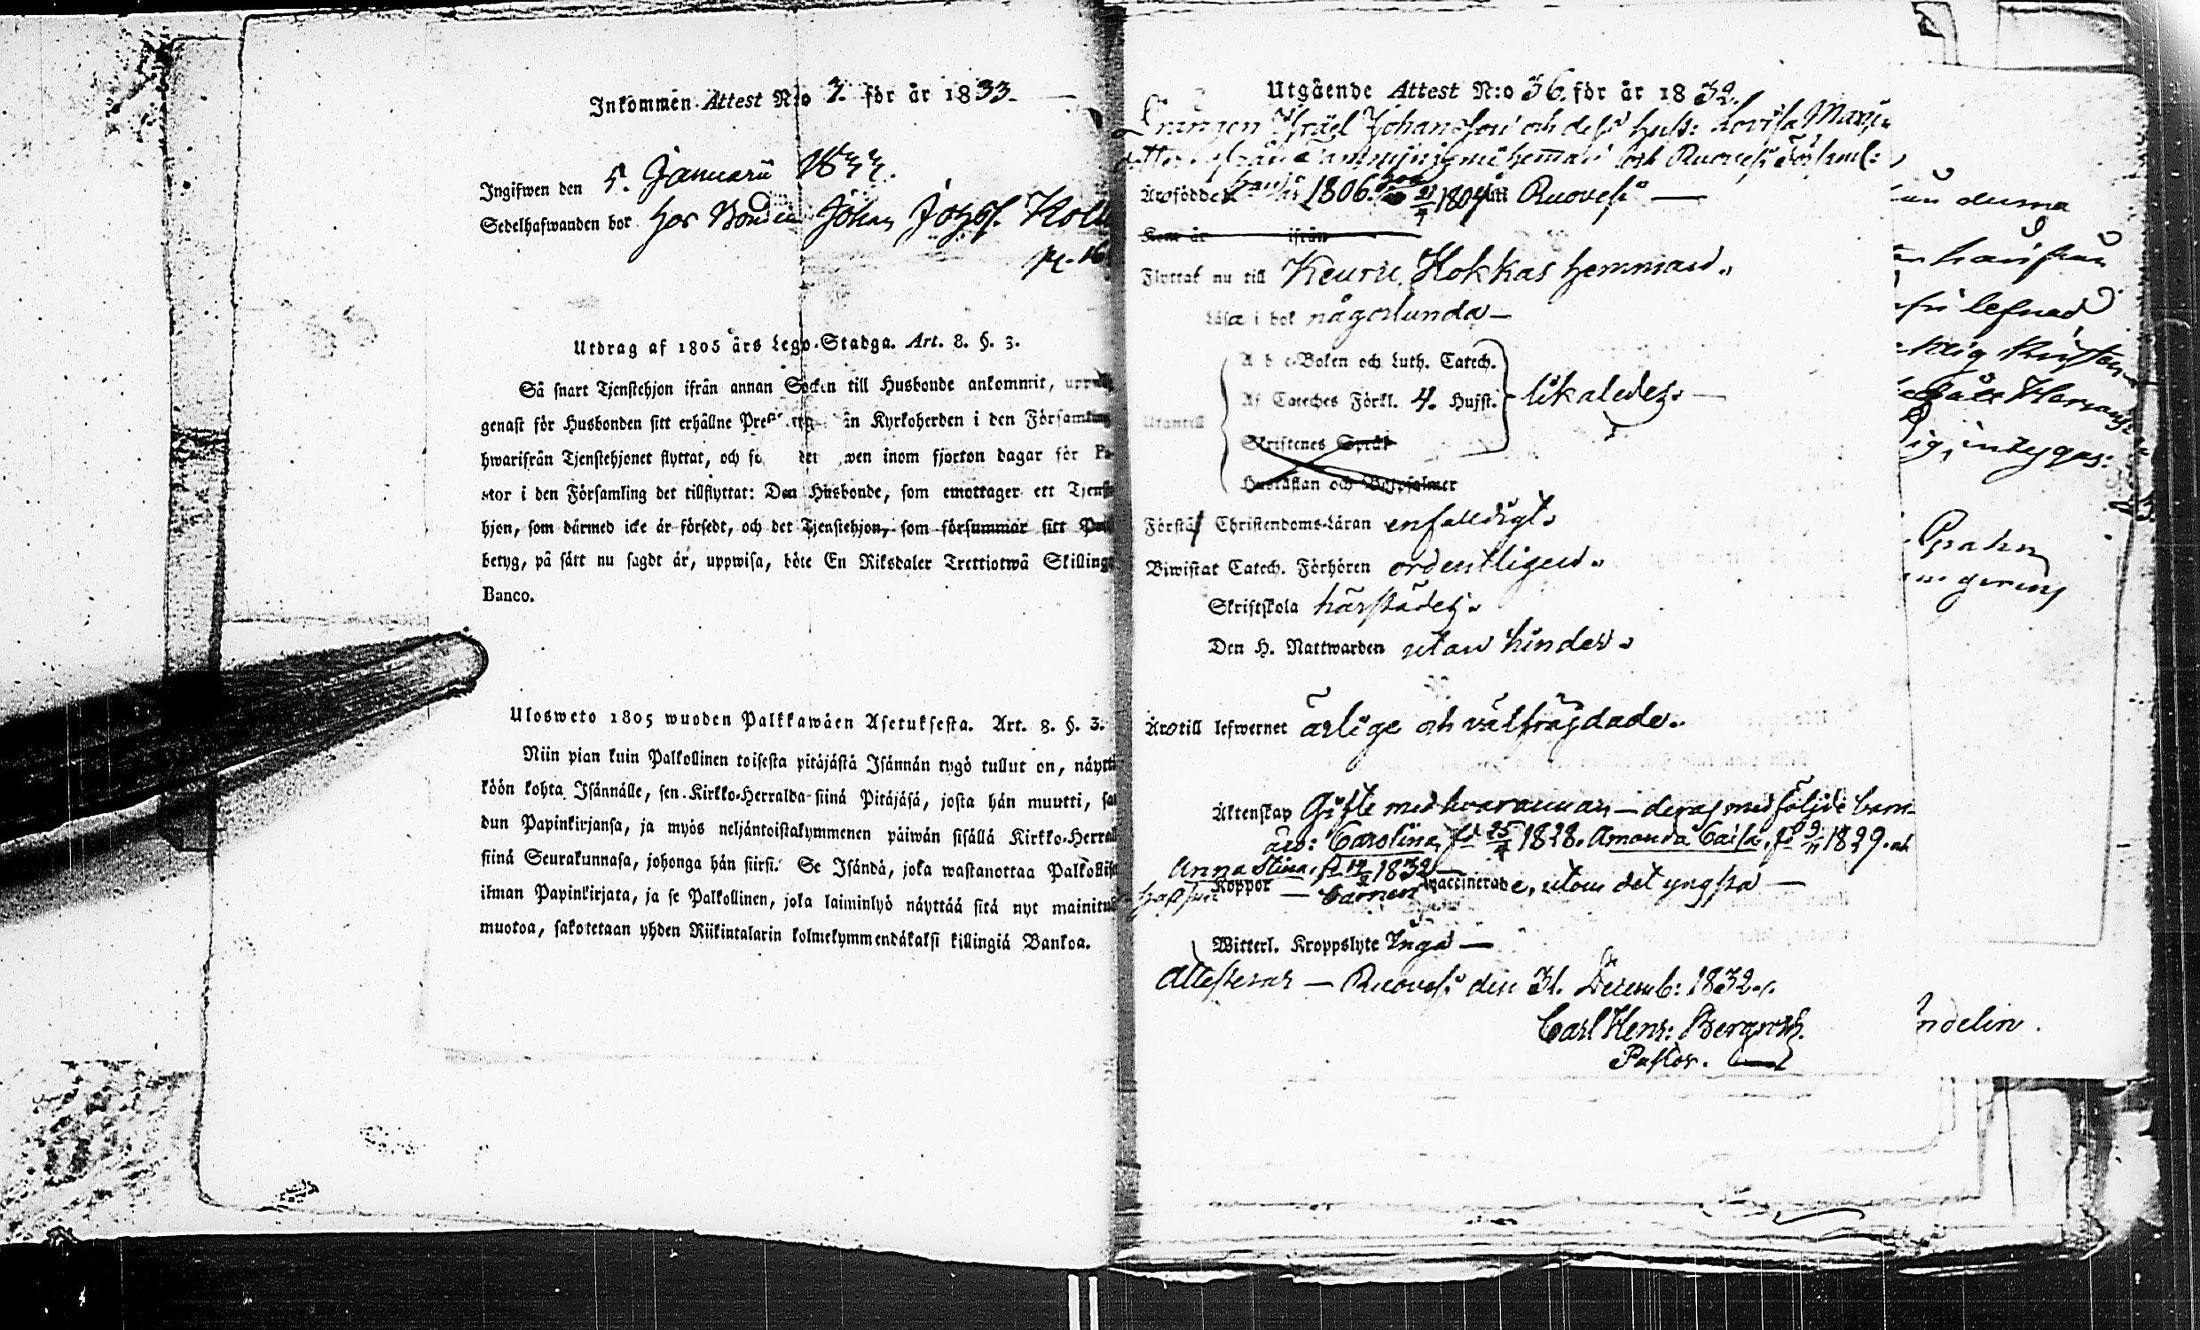 Inkommen Attest N:o 7. för år 1833.
Ingifwen den 5. Januarii 1833.
Sedelhafwanden bor hos Bonden Johan Jozef
Utdrag af 1805 års Lego-Stadga. Art. 8. §. 3.
Så snart Tjenstehjon ifrån annan Socken till Husbonde ankommit,
genast för Husbonden sitt erhållne Kyrkoherden i den Församling
hwarifrån Tjenstehjonet flyttat, och inom fjorton dagar för Pa-
stor i den Församling det tillflyttat: Den Husbonde, som emottager ett Tjenste-
hjon, som därmed icke är försedt, och det Tjenstehjon, som försummar sitt
betyg, på sätt nu sagdt är, uppwisa, böte En Riksdaler Trettiotwå Skillingar
Banco.
Ulosweto 1805 wuoden Palkkawäen Asetuksesta. Art. 8. §. 3.
Niin pian kuin Palkollinen toisesta pitäjästä Isännän tygö tullut on, näyttä-
köön kohta Isännälle, sen Kirkko-Herralda siinä Pitäjäsä, josta hän muutti, saa-
dun Papinkirjansa, ja myös neljäntoistakymmenen päiwän sisällä Kirkko-Herralle
siinä Seurakunnasa, johonga hän siirsi. Se Isändä, joka wastanottaa Palkollisen
ilman Papinkirjata, ja se Palkollinen, joka laiminlyö näyttää sitä nyt mainitulla
muotoa, sakotetaan yhden Riikintalarin kolmekymmendäkaksi killingiä Bankoa.
Utgående Attest N:o 36. för år 1832.
Drängen Israel Johansson och dess hust: Lovisa
hemman och Ruovesi
Äro födde 1806. 1804 i Ruovesi
Kom år ifrån
Flyttat nu till Keuru, Hokkas hemman.
Läsa i bok någorlunda
A b c-Boken och Luth. Catech.
Utantill Af Cateches Förkl. 4. Hufst. likaledes.
Skriftenes Språk
Hustaflan och Botpsalmer
Förstå Christendoms-Läran enfaldigt.
Biwistat Catech. Förhören ordentligen.
Skriftskola härstädes.
Den H. Nattwarden utan hinder.
Äro till lefwernet ärlige och välfrägdade.
Äktenskap Gifte med hvarannan – deras medföljde barn
äro: Carolina, fd 25/4 1828. Amanda Caisa, fd 9/11 1829. och
Anna Stina, fd 14/2 1832
Koppor – barnen vaccinerade, utom det yngsta
Witterl. Kroppslyte Inga
Attesteras – Ruovesi den 31. Decemb: 1832.
Carl Henr: Bergroth.
Pastor.
lefnad
intygas:
ndelin.